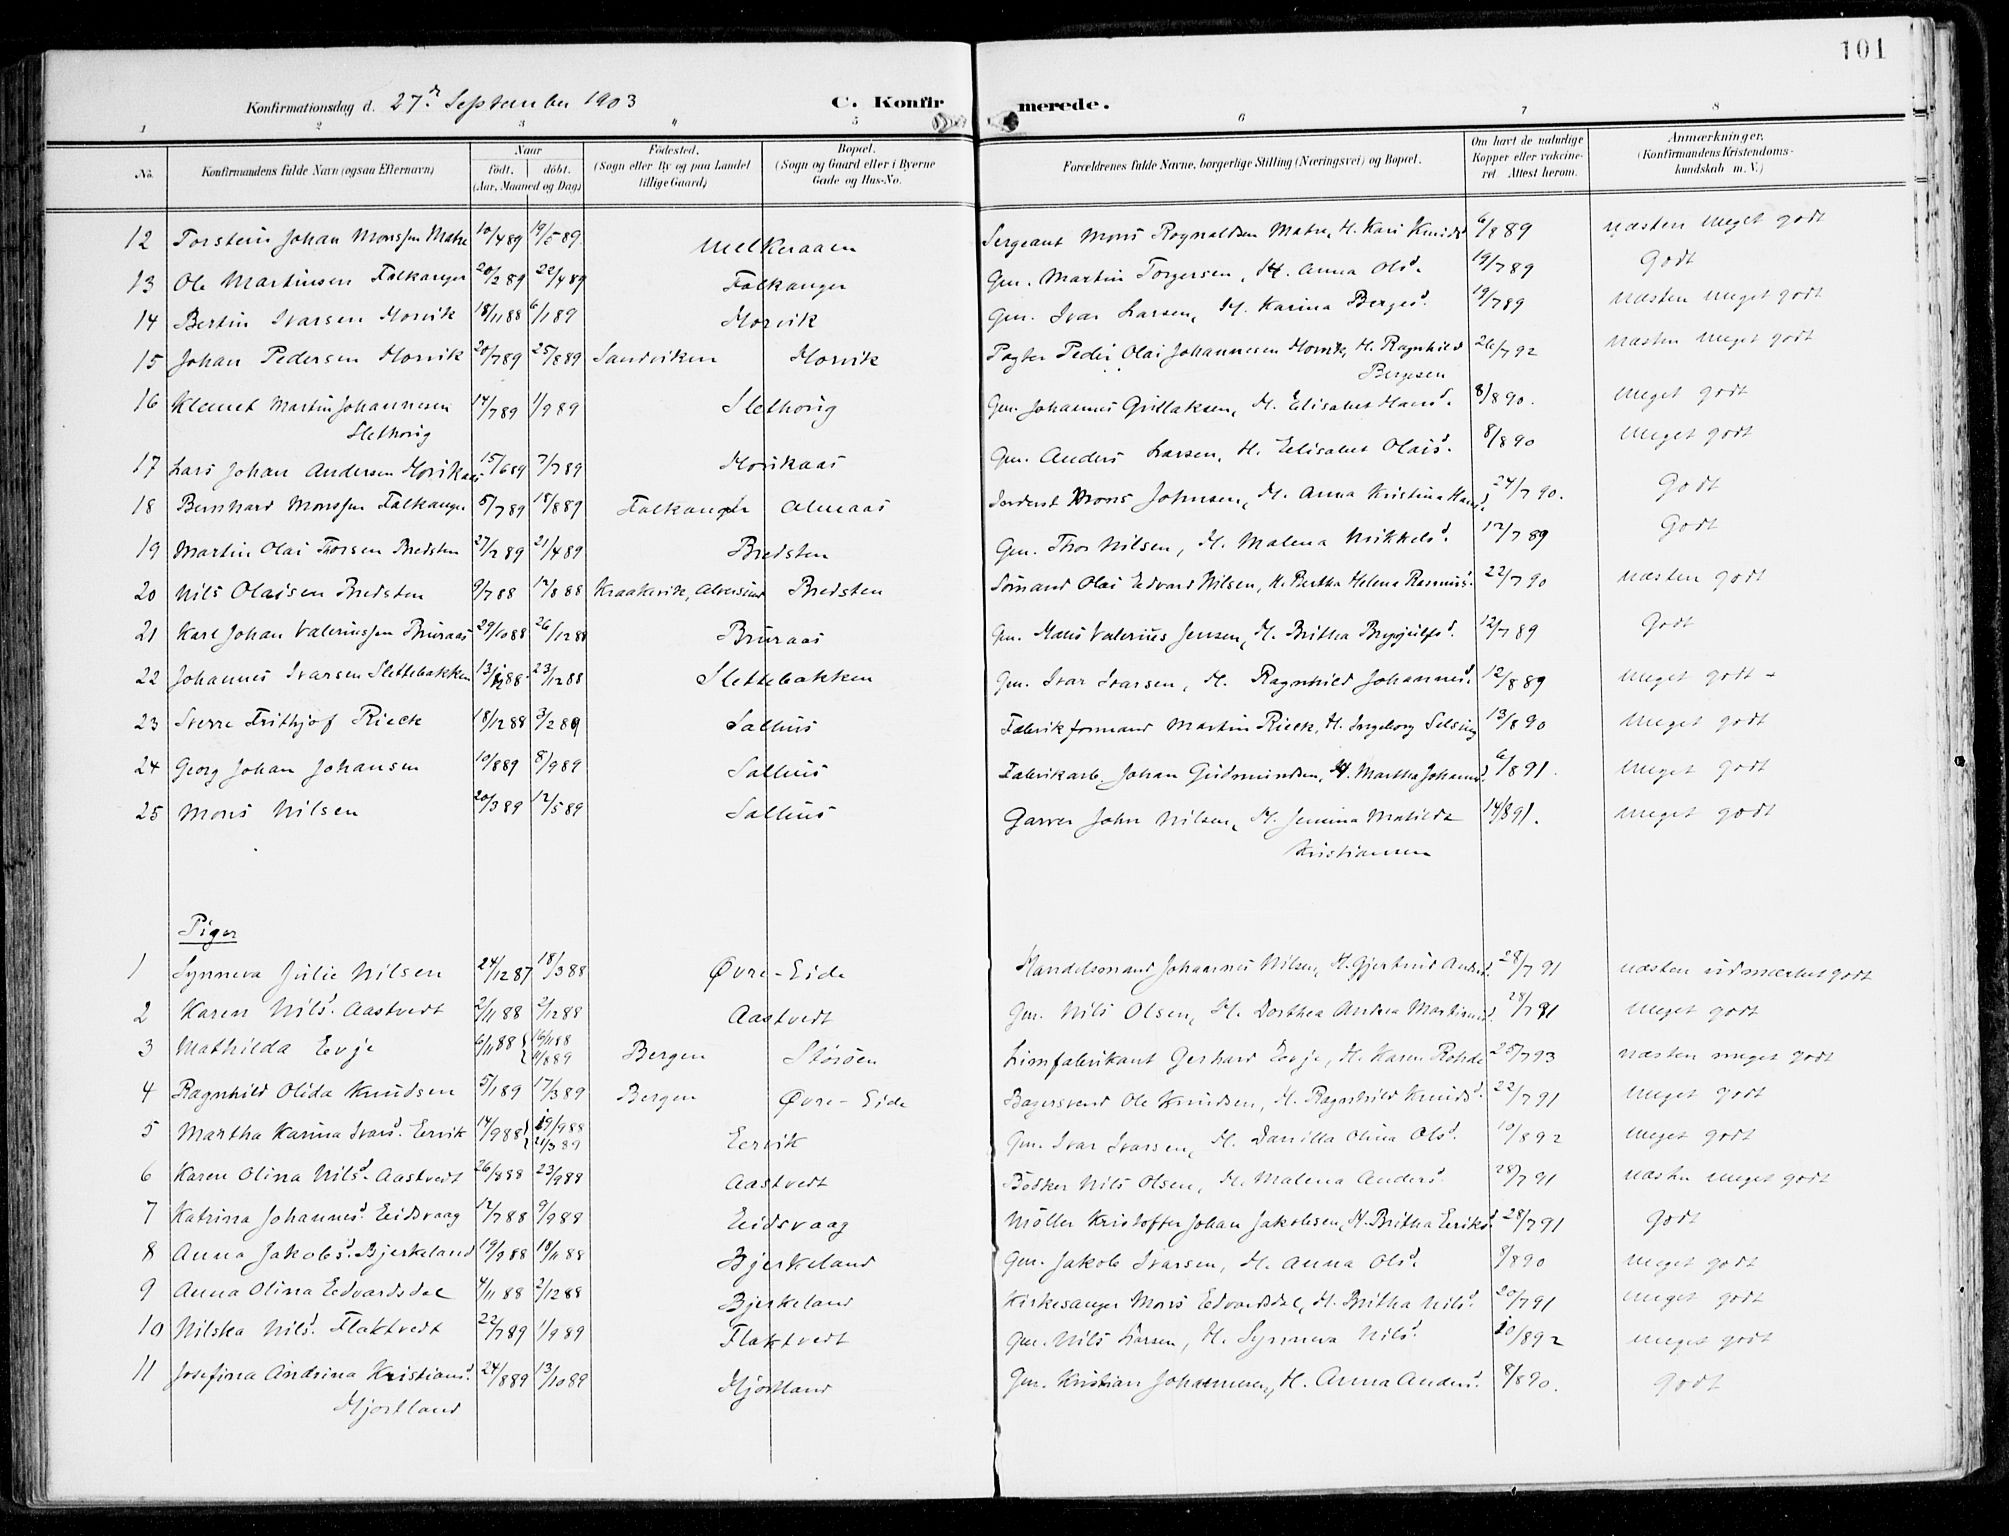 101
Konfirmationsdag d. 27de September 1903 C. Konfirmerede.
1 2 3 4 5 6 7 8
No. Konfirmandens fulde Navn (ogsaa Efternavn) Naar födt. döbt. (Aar, Maaned og Dag) Födested. (Sogn eller By og paa Landet tillige Gaard) Bopæl. (Sogn og Gaard eller i Byerne Gade og Hus-No. Forældrenes fulde Navne, borgerlige Stilling (Næringsvei) og Bopæl. Om havt de naturlige Kopper eller vakcineret. Attest herom. Anmærkninger. (Konfirmandens Kristendomskundskab m. V.)
12 Torstein Johan Monssen Matre 10/4 89 19/5 89 Melkeraaen Sergeant Mons Ragnaldsen Matre, H. Kari Knuds 6/8 89 næsten meget godt
13 Ole Martinsen Falkanger 20/2 89 22/4 89 Falkanger Gm. Martin Torgersen, H. Anna Olsd. 19/7 89 Godt
14 Bertin Ivarsen Morvik 18/11 88 6/1 89 Morvik Gm. Ivar Larsen, H. Karina Bergesd. 19/7 89 næsten meget godt
15 Johan Pedersen Morvik 20/7 89 25/8 89 Sandviken Morvik Pagter Peder Olai Johannesen Morvik, H. Ragnhild Bergesen 26/7 92 næsten meget godt
16 Klemet Martin Johannesen Slethovig 14/7 89 1/9 89 Slethovig Gm. Johannes Gullaksen, H. Elisabet Hansd. 8/8 90. meget godt
17 Lars Johan Andersen Morikaas 15/6 89 7/7 89 Morikaas Gm. Anders Larsen, H. Elisabet Olaisd. 8/8 90 meget godt
18 Bernhard Monssen Falkanger 5/7 89 18/8 89 Falkanger Almaas Mons Johnsen, H. Anna Kristina Hansd. 24/7 90. Godt
19 Martin Olai Thorsen Bredsten 27/2 89 21/4 89 Bredsten Gm. Thor Nilsen, H. Malena Mikkelsd. 12/7 89 Godt
20 Nils Olaisen Bredsten 9/7 88 12/8 88 Kraakevik, Alversund Bredsten Sömand Olai Edvard Nilsen, H. Bertha Helena Rasmusd. 22/7 90 næsten godt
21 Karl Johan Valeriussen Bruraas 29/10 88 26/12 88 Bruraas Gm. Mads Valerius Jensen, H. Britha Brynjulfsd. 12/7 89 Godt
22 Johannes Ivarsen Slettebakken 13/12 88 23/12 88 Slettebakken Gm. Ivar Ivarsen, H. Ragnhild Johannesd. 12/8 89 meget godt
23 Sverre Frithjof Rieck 18/12 88 3/2 89 Salhus Fabrikformand Martin Rieck, H. Ingeborg Selsing 13/8 90 meget godt
24 Georg Johan Johansen 10/8 89 8/9 89 Salhus Fabrikarb. Johan Gudmundsen, H. Martha Johannesd. 6/8 91. meget godt
25 Mons Nilsen 20/3 89 12/5 89 Salhus Garver John Nilsen, H. Jemina Matilde Kristiansen 14/8 91. meget godt
Piger
1 Synneva Julie Nilsen 24/12 87 18/3 88 Øvre-Eide Handelsmand Johannes Nilsen, H. Gjertrud Andersd. 28/7 91 næsten udmærket godt
2 Karen Nilsd. Aastvedt 2/11 88 2/12 88 Aastvedt Gm. Nils Olsen, H. Dorthea Andrea Martinusd. 28/7 91 meget godt
3 Mathilda Evje 6/11 88 16/11 88 11/8 89 Bergen Störöen Limfabrikant Gerhard Evje, H. Karen Rohde 25/7 93 næsten meget godt
4 Ragnhild Olida Knudsen 5/1 89 17/3 89 Bergen Øvre-Eide Bagersvend Ole Knudsen, H. Ragnhild Knudsd. 22/7 91 meget godt
5 Martha Karina Ivarsd. Eervik 14/9 88 19/9 88 21/3 89 Eervik Gm. Ivar Ivarsen, H. Danilla Olina Olsd. 10/8 92 meget godt
6 Karen Olina Nilsd. Aastvedt 26/8 88 23/9 88 Aastvedt Bödker Nils Olsen, H. Malena Andersd. 28/7 91 næsten meget godt
7 Katrina Johannesd. Eidsvaag 12/7 88 9/9 88 Eidsvaag Möller Kristoffer Johan Jakobsen, H. Britha Eeriksd. 28/7 91 Godt
8 Anna Jakobsd. Bjerkeland 19/9 88 18/11 88 Bjerkeland Gm. Jakob Ivarsen, H. Anna Olsd. 8/8 90 meget godt
9 Anna Olina Eedvardsdal 4/11 88 2/12 88 Bjerkeland Kirkesanger Mons Eedvardsdal, H. Britha Nilsd. 20/7 91 meget godt
10 Nilska Nilsd. Flaktvedt 22/7 89 1/9 89 Flaktvedt Gm. Nils Larsen, H. Synneva Nilsd. 10/8 92 meget godt
11 Josefina Andrina Kristiansd. Mjortland 24/8 89 13/10 89 Mjortland Gm. Kristian Johannesen, H. Anna Andersd. 8/8 90. Godt